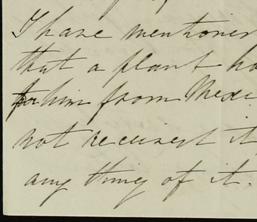 I have mentioned
that a plant ha
to him from Mexi
not received it
any thing of it.